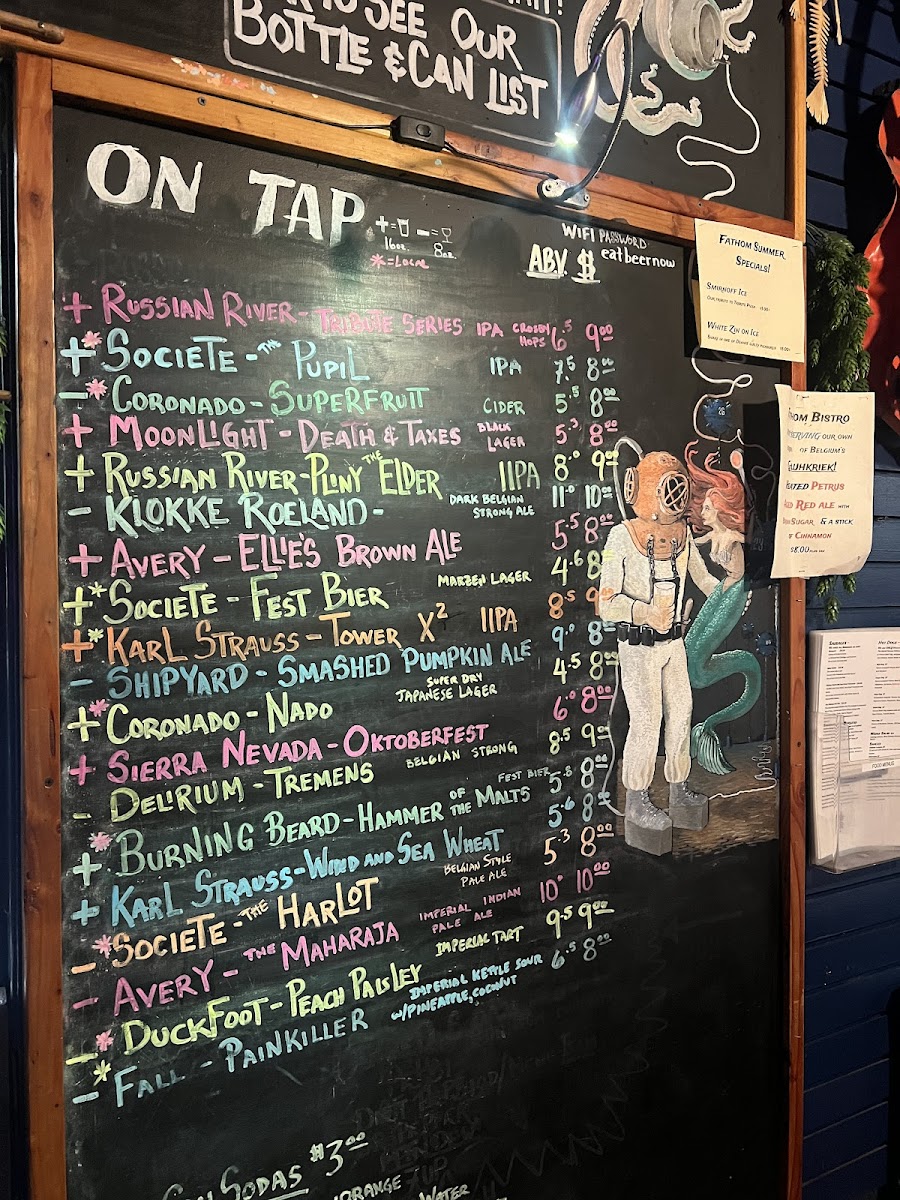 TO SEE OUR
BOTTLE & CAN LIST
ON TAP
+ = 16oz - = 8oz
* = LOCAL
WIFI PASSWORD
eatbeernow
ABV. $
+ RUSSIAN RIVER - TRIBUTE SERIES IPA CROSBY HOPS 6.5 9.00
+* SOCIETE - THE PUPIL IPA 7.5 8.00
-* CORONADO - SUPERFRUIT CIDER 5.5 8.00
+ MOONLIGHT - DEATH & TAXES BLACK LAGER 5.3 8.00
+ RUSSIAN RIVER - PLINY THE ELDER IIPA 8.0 9.00
- KLOKKE ROELAND - DARK BELGIAN STRONG ALE 11.0 10.00
+ AVERY - ELLIE'S BROWN ALE 5.5 8.00
+* SOCIETE - FEST BIER MARZEN LAGER 4.6 8
+* KARL STRAUSS - TOWER X2 IIPA 8.5 9
- SHIPYARD - SMASHED PUMPKIN ALE 9.0 8.00
+* CORONADO - NADO SUPER DRY JAPANESE LAGER 4.5 8.00
+ SIERRA NEVADA - OKTOBERFEST 6.0 8.00
- DELIRIUM - TREMENS BELGIAN STRONG 8.5 9.00
+* BURNING BEARD - HAMMER OF THE MALTS FEST BIER 5.6 8.00
+ KARL STRAUSS - WIND AND SEA WHEAT 5.6 8.00
-* SOCIETE - THE HARLOT BELGIAN STYLE PALE ALE 5.3 8.00
- AVERY - THE MAHARAJA IMPERIAL INDIAN PALE ALE 10.0 10.00
-* DUCKFOOT - PEACH PAISLEY IMPERIAL TART 9.5 9.00
-* FALL - PAINKILLER IMPERIAL KETTLE SOUR W/PINEAPPLE, COCONUT 6.5 8.00
SODAS $3.00
WATER
FATHOM SUMMER
SPECIALS!
SMIRNOFF ICE
WHITE ZIN ON ICE
BISTRO
OUR OWN
OF BELGIUM'S
PETRUS
RED ALE WITH
SUGAR & A STICK
OF CINNAMON
$8.00
FOOD MENUS